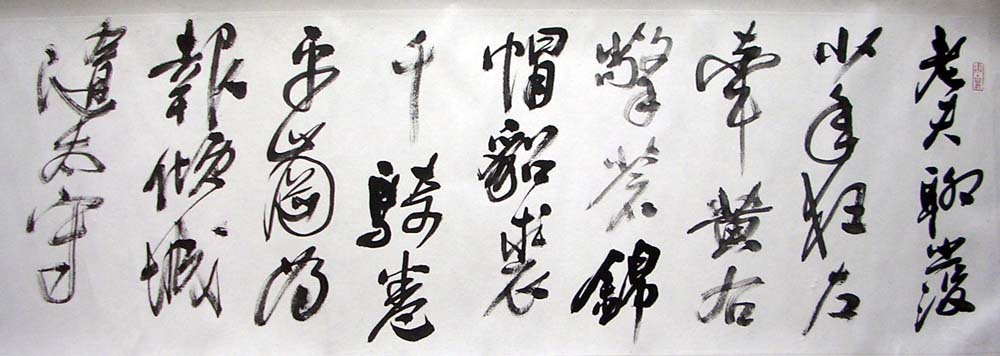 老夫聊發
少年狂左
牽黄右
擎蒼錦
帽貂裘
千騎卷
平崗為
報傾城
隨太守